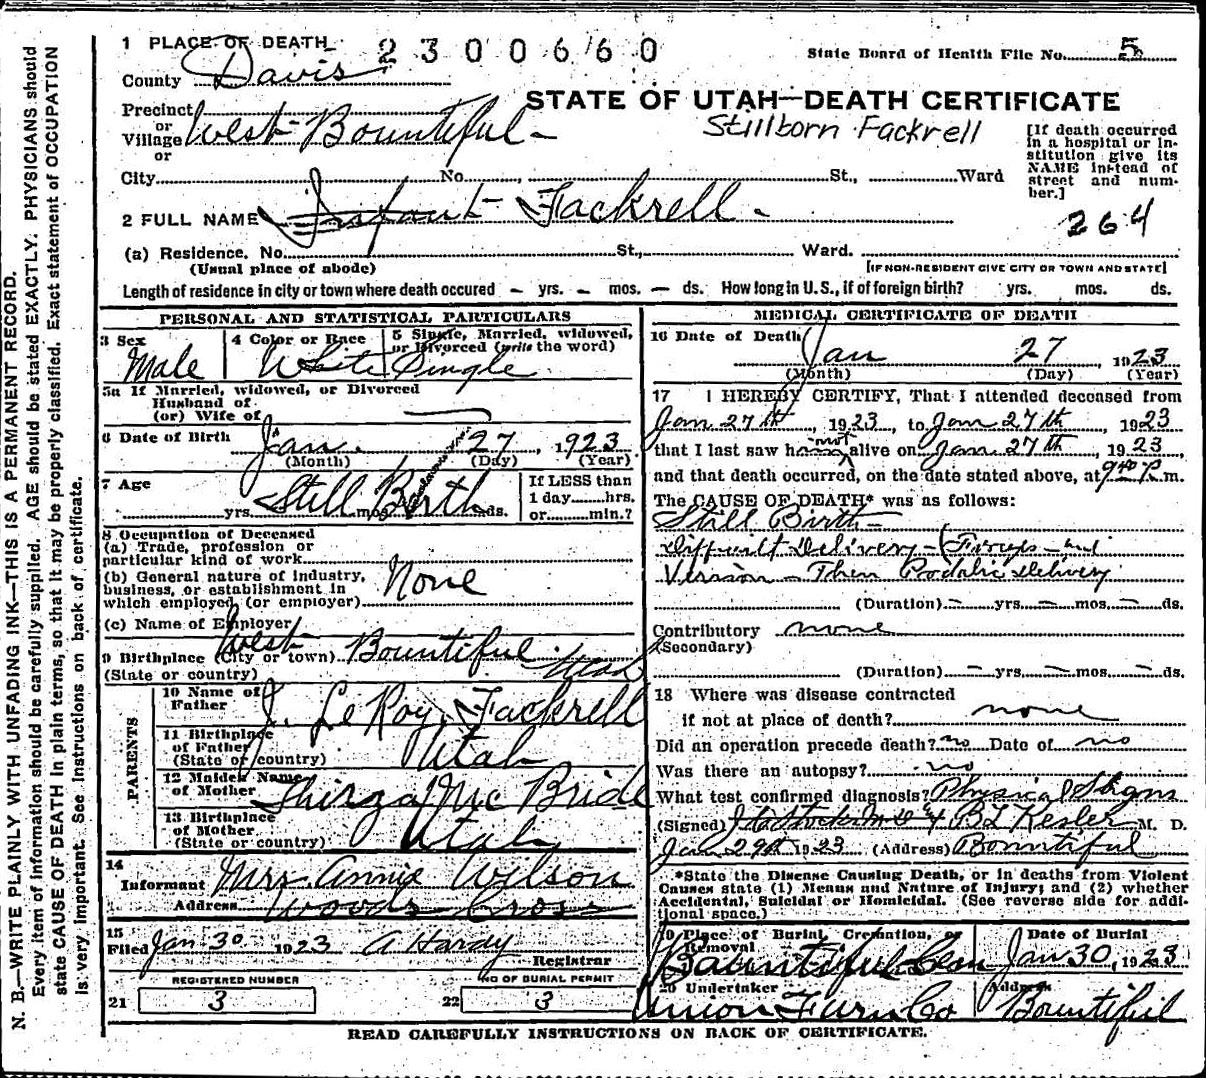 1 PLACE OF DEATH 2300660 State Board of Health File No. 5
County Davis
STATE OF UTAH—DEATH CERTIFICATE
Precinct
or
Village West Bountiful
or
Stillborn Fackrell
[If death occurred in a hospital or institution give its NAME instead of street and number.]
City No. St., Ward
2 FULL NAME Infant Fackrell
264
(a) Residence. No. St., Ward.
(Usual place of abode) [IF NON-RESIDENT GIVE CITY OR TOWN AND STATE]
Length of residence in city or town where death occured – yrs. – mos. – ds. How long in U.S., if of foreign birth? yrs. mos. ds.
PERSONAL AND STATISTICAL PARTICULARS
3 Sex 4 Color or Race 5 Single, Married, widowed, or Divorced (write the word)
Male White Single
5a If Married, widowed, or Divorced
Husband of
(or) Wife of
6 Date of Birth Jan. 27, 1923
(Month) (Day) (Year)
7 Age Still Birth
yrs. mos. ds.
If LESS than
1 day hrs.
or min.?
8 Occupation of Deceased
(a) Trade, profession or
particular kind of work
(b) General nature of industry,
business, or establishment in
which employed (or employer) None
(c) Name of Employer
9 Birthplace (City or town) West Bountiful
(State or country) Utah
PARENTS
10 Name of Father J. LeRoy Fackrell
11 Birthplace of Father
(State or country) Utah
12 Maiden Name of Mother Thirza Mc Bride
13 Birthplace of Mother
(State or country) Utah
14
Informant Mrs Annie Wilson
Address Woods Cross
15
Filed Jan 30 1923 A Hardy
Registrar
REGISTERED NUMBER NO OF BURIAL PERMIT
21 3 22 3
MEDICAL CERTIFICATE OF DEATH
16 Date of Death Jan 27, 1923
(Month) (Day) (Year)
17 I HEREBY CERTIFY, That I attended deceased from
Jan 27th, 1923, to Jan 27th 1923
that I last saw him not alive on Jan 27th, 1923,
and that death occurred, on the date stated above, at 9 40 P.m.
The CAUSE OF DEATH* was as follows:
Still Birth—
Difficult Delivery – (Forceps and
Version – Then Podalic Delivery
(Duration) – yrs. – mos. – ds.
Contributory none
(Secondary)
(Duration) – yrs. – mos. – ds.
18 Where was disease contracted
if not at place of death? none
Did an operation precede death? no Date of no
Was there an autopsy? no
What test confirmed diagnosis? Physical Signs
(Signed) & BL Kesler M. D.
Jan 29th 1923 (Address) Bountiful
*State the Disease Causing Death, or in deaths from Violent
Causes state (1) Means and Nature of Injury; and (2) whether
Accidental, Suicidal or Homicidal. (See reverse side for addi-
tional space.)
19 Place of Burial, Cremation, or Removal Date of Burial
Bountiful Cem Jan 30, 1923
20 Undertaker Address
Union Furn Co Bountiful
READ CAREFULLY INSTRUCTIONS ON BACK OF CERTIFICATE.
N. B.—WRITE PLAINLY WITH UNFADING INK—THIS IS A PERMANENT RECORD.
Every item of information should be carefully supplied. AGE should be stated EXACTLY. PHYSICIANS should
state CAUSE OF DEATH in plain terms, so that it may be properly classified. Exact statement of OCCUPATION
is very important. See instructions on back of certificate.